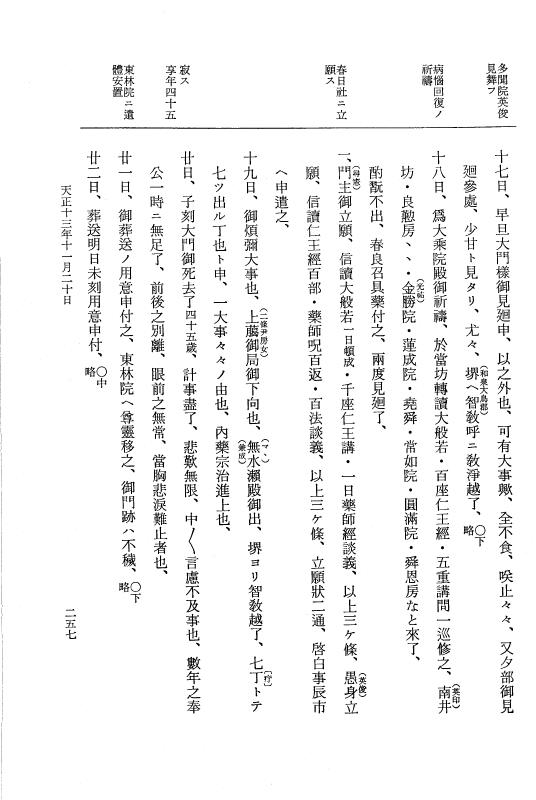 多聞院英俊
見舞フ
病惱回復ノ
祈禱
春日社ニ立
願ス
寂ス
享年四十五
東林院ニ遺
體安置
十七日、早旦大門樣御見廻申、以之外也、可有大事歟、全不食、咲止々々、又夕部御見
廻參處、少甘ト見タリ、尤々、堺(和泉大鳥郡)ヘ智教呼ニ教淨越了、○下略
十八日、爲大乘院殿御祈禱、於當坊轉讀大般若・百座仁王經・五重講問一巡修之、南井(英印)
坊・良懃房、、・金勝院(光祐)・蓮成院・堯舜・常如院・圓滿院・舜恩房なと來了、
酌酛不出、春良召具藥付之、兩度見廻了、
一、門主(尋憲)御立願、信讀大般若一日頓成・千座仁王講・一日藥師經談義、以上三ケ條、愚身(英俊)立
願、信讀仁王經百部・藥師呪百返・百法談義、以上三ケ條、立願狀二通、啓白事辰市
ヘ申遣之、
十九日、御煩彌大事也、上﨟御局(二條尹房女)御下向也、無水瀨殿(マヽ)(兼成)御出、堺ヨリ智教越了、七丁(付)トテ
七ツ出ル丁也ト申、一大事々々ノ由也、內藥宗治進上也、
廿日、子刻大門御死去了四十五歲、計事盡了、悲歎無限、中〳〵言慮不及事也、數年之奉
公一時ニ無足了、前後之別離、眼前之無常、當胸悲淚難止者也、
廿一日、御葬送ノ用意申付之、東林院ヘ尊靈移之、御門跡ハ不穢、○下略
廿二日、葬送明日未刻用意申付、○中略
天正十三年十一月二十日
二五七